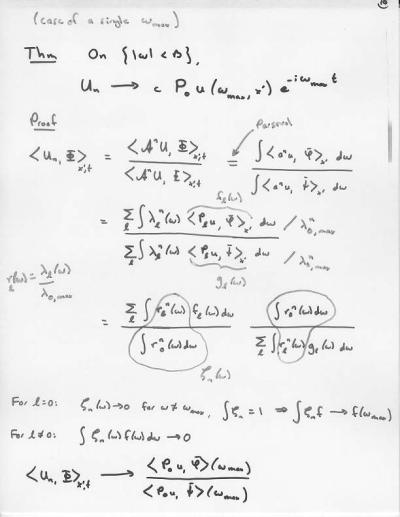 10
(case of a single ω_max)
Thm On {|ω| < B},
U_n → c P_0 u(ω_max, x') e^{-iω_max t}
Proof
Parseval
⟨U_n, Φ⟩_{x',t} = ⟨A^n U, Φ⟩_{x',t} / ⟨A^n U, Ξ⟩_{x',t} = ∫⟨a^n u, φ̂⟩_{x'} dω / ∫⟨a^n u, ξ̂⟩_{x'} dω
f_ℓ(ω)
= Σ_ℓ ∫ λ_ℓ^n(ω) ⟨P_ℓ u, φ̂⟩_{x'} dω / λ_{0,max}^n
Σ_ℓ ∫ λ_ℓ^n(ω) ⟨P_ℓ u, ξ̂⟩_{x'} dω / λ_{0,max}^n
g_ℓ(ω)
r_ℓ(ω) = λ_ℓ(ω) / λ_{0,max}
= Σ_ℓ ∫ r_ℓ^n(ω) f_ℓ(ω) dω / ∫ r_0^n(ω) dω ∫ r_0^n(ω) dω / Σ_ℓ ∫ r_ℓ^n(ω) g_ℓ(ω) dω
ζ_n(ω)
For ℓ=0: ζ_n(ω) → 0 for ω ≠ ω_max, ∫ζ_n = 1 ⇒ ∫ζ_n f → f(ω_max)
For ℓ≠0: ∫ ζ_n(ω) f(ω) dω → 0
⟨U_n, Φ⟩_{x',t} → ⟨P_0 u, φ̂⟩(ω_max) / ⟨P_0 u, ξ̂⟩(ω_max)